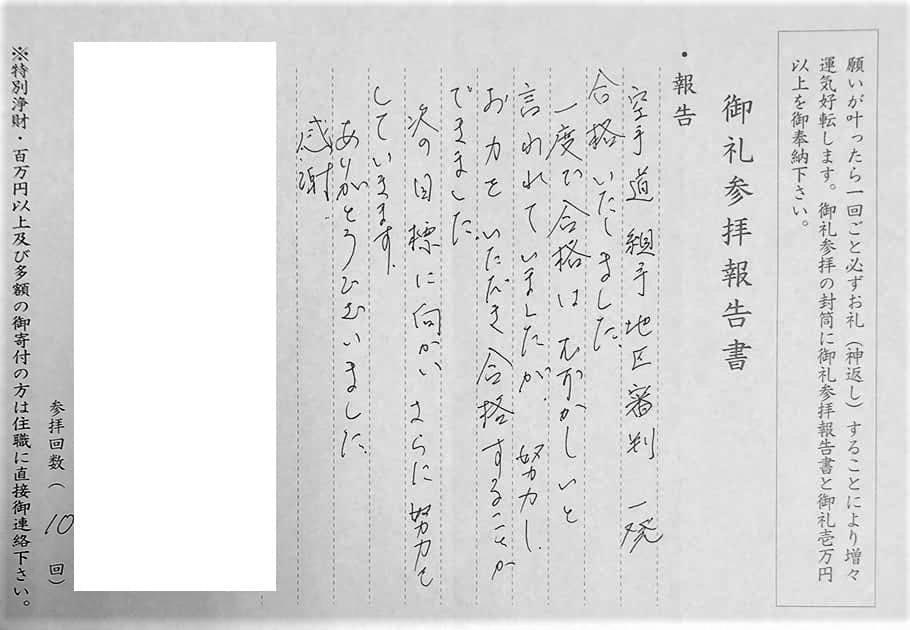 願いが叶ったら一回ごと必ずお礼（神返し）することにより増々
運気好転します。御礼参拝の封筒に御礼参拝報告書と御礼壱万円
以上を御奉納下さい。
御礼参拝報告書
・報告
空手道 組手 地区審判 一発
合格いたしました。
一度で合格は むずかしいと
言われていましたが、努力し、
お力をいただき合格することが
できました。
次の目標に向かい さらに努力を
していきます。
ありがとうございました。
感謝.
参拝回数（ 10 回）
※特別浄財・百万円以上及び多額の御寄付の方は住職に直接御連絡下さい。